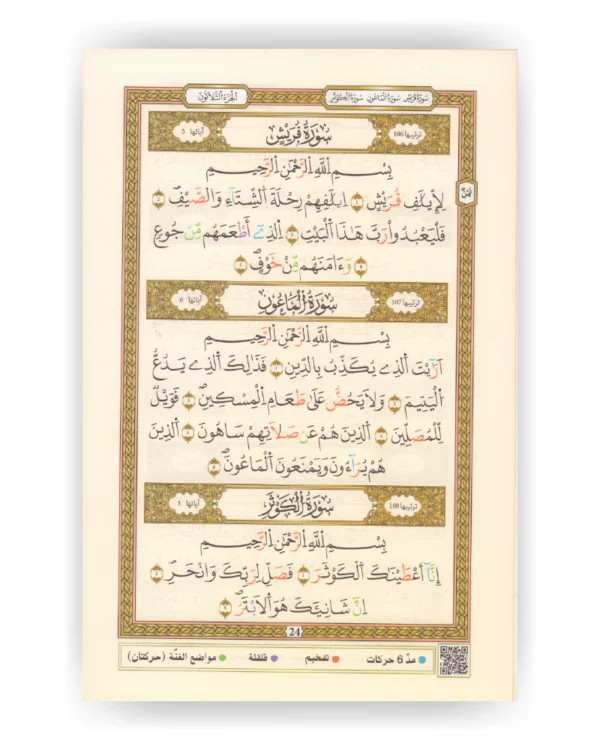 سورة قريش سورة الماعون سورة الكوثر
الجزء الثلاثون
ترتيبها 106 سُورَةُ قُرَيْشٍ آياتها 5
بِسْمِ اِللَّهِ اِلرَّحْمَٰنِ اِلرَّحِيمِ
ثمن
لِإِيلَٰفِ قُرَيْشٍ ١ اِۦلَٰفِهِمْ رِحْلَةَ اَلشِّتَآءِ وَالصَّيْفِۖ ٢
فَلْيَعْبُدُواْ رَبَّ هَٰذَا اَلْبَيْتِ ٣ اِلذِےٓ أَطْعَمَهُم مِّن جُوعٍ
٤ وَءَامَنَهُم مِّنْ خَوْفٍۖ ٥
ترتيبها 107 سُورَةُ اُلْمَاعُونِ آياتها 6
بِسْمِ اِللَّهِ اِلرَّحْمَٰنِ اِلرَّحِيمِ
أَرَٰٓيْتَ اَلذِے يُكَذِّبُ بِالدِّينِ ١ فَذَٰلِكَ اَلذِے يَدُعُّ
اُلْيَتِيمَ ٢ وَلَا يَحُضُّ عَلَىٰ طَعَامِ اِلْمِسْكِينِۖ ٣ فَوَيْلٌ
لِّلْمُصَلِّينَ ٤ اَلذِينَ هُمْ عَن صَلَاتِهِمْ سَاهُونَ ٥ اَلذِينَ
هُمْ يُرَآءُونَ وَيَمْنَعُونَ اَلْمَاعُونَۖ ٦
ترتيبها 108 سُورَةُ اُلْكَوْثَرِ آياتها 3
بِسْمِ اِللَّهِ اِلرَّحْمَٰنِ اِلرَّحِيمِ
إِنَّآ أَعْطَيْنَٰكَ اَلْكَوْثَرَ ١ فَصَلِّ لِرَبِّكَ وَانْحَرِۖ ٢
اِنَّ شَانِئَكَ هُوَ اَلَابْتَرُۖ ٣
24
مدّ 6 حركات تفخيم قلقلة مواضع الغنّة (حركتان)